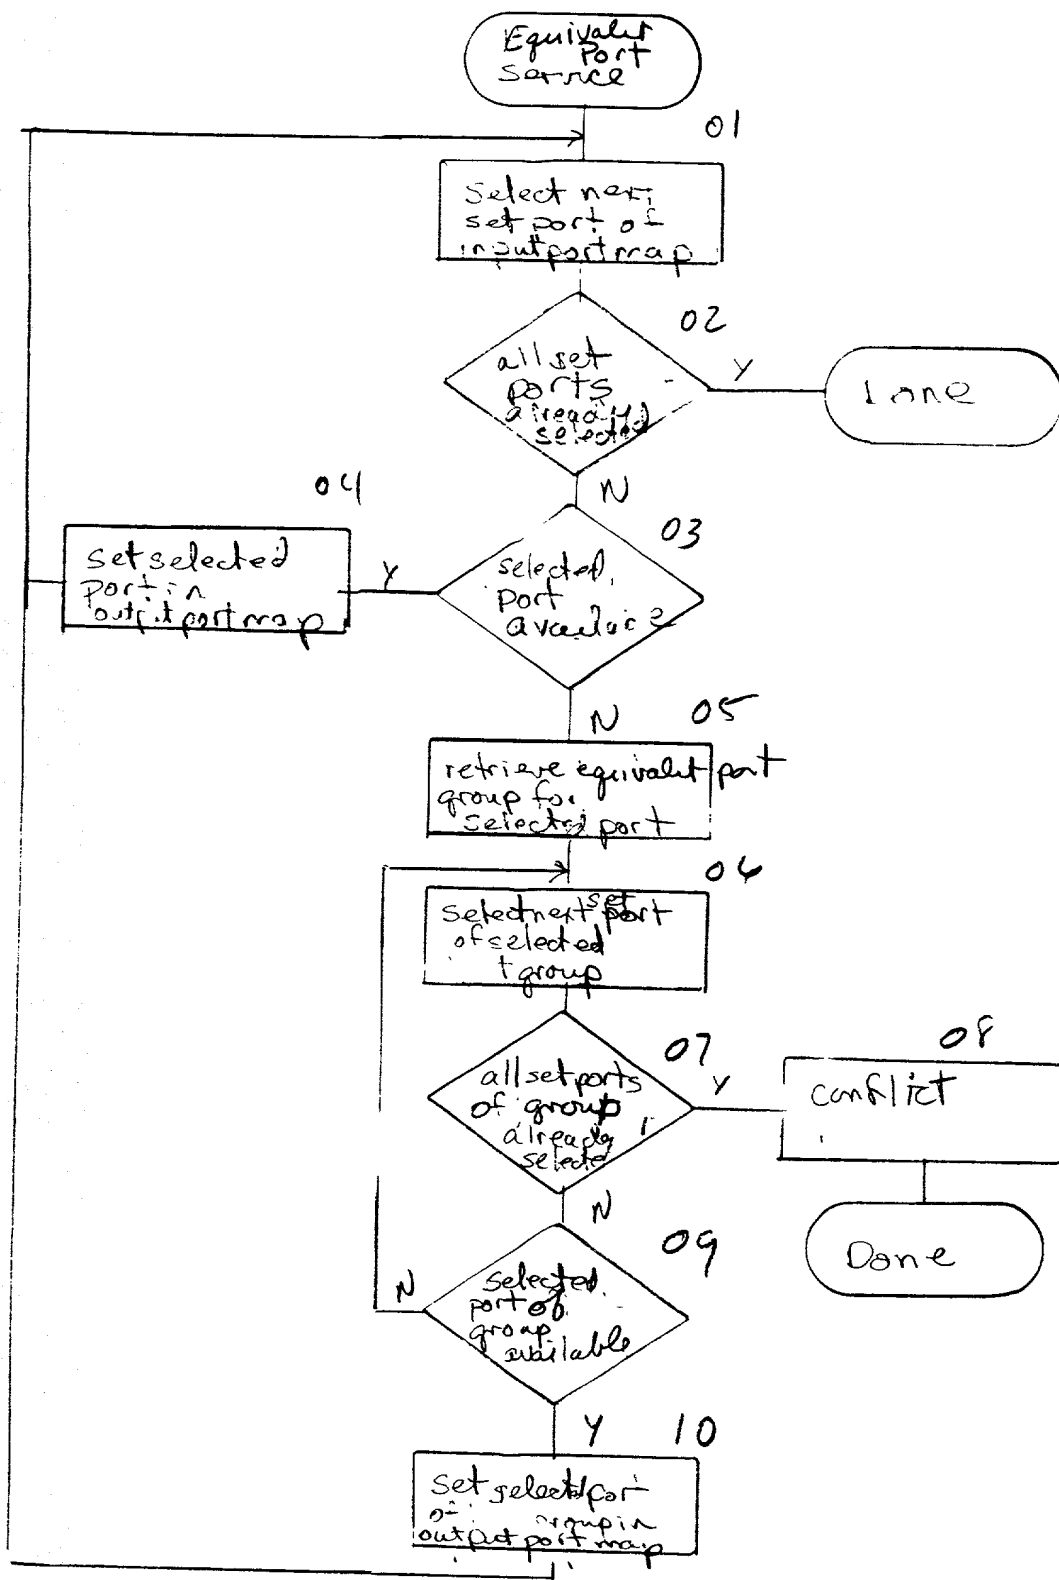 Equivalent
Port
Service
01
Select next
set port of
input port map
02
all set
ports
already
selected
Y
Done
N
04
03
set selected
port in
output port map
Y
selected
port
available
N
05
retrieve equivalent port
group for
selected port
06
set
Select next port
of selected
group
07
08
all set ports
of group
already
selected
Y
conflict
N
09
Done
N
selected
port of
group
available
Y
10
set selected port
of group in
output port map